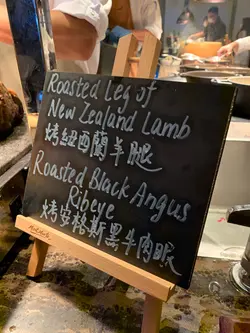 Roasted Leg of
New Zealand Lamb
烤紐西蘭羊腿
Roasted Black Angus
Ribeye
烤安格斯黑牛肉眼